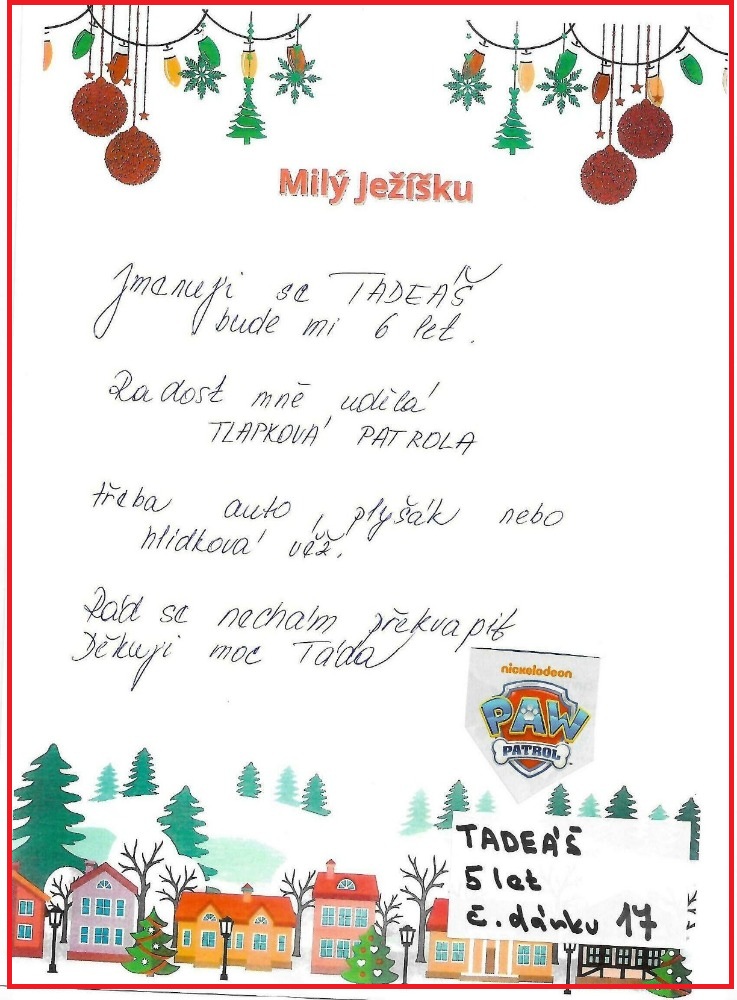 Milý Ježíšku
Jmenuji se TADEÁŠ
bude mi 6 let.
Radost mně udělá
TLAPKOVÁ PATROLA
třeba auto, plyšák nebo
hlídková věž.
Rád se nechám překvapit
Děkuji moc Táda
nickelodeon
PAW
PATROL
TADEÁŠ
5 let
č. dárku 17